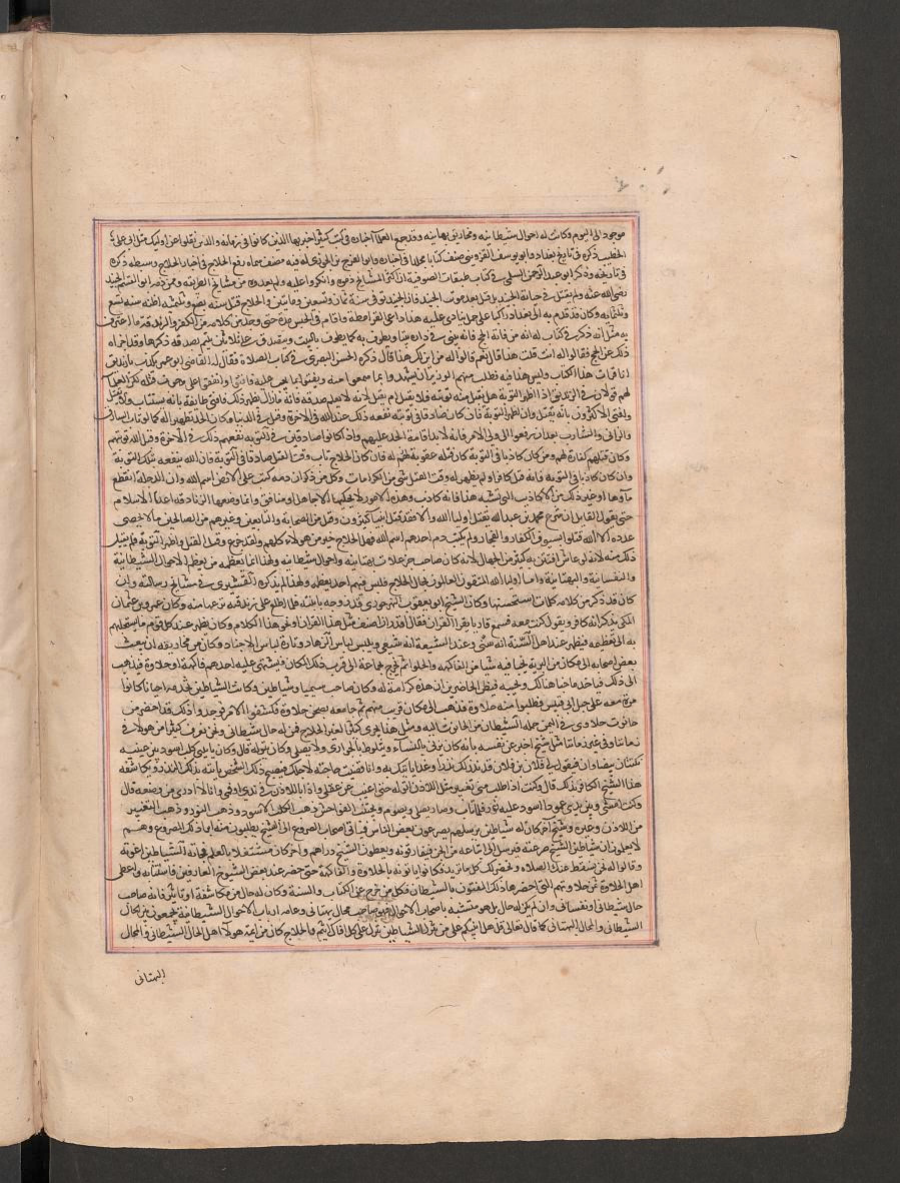 موجود الى اليوم وكانت له احوال شيطانية ومخاريق بهتانية وقد جمع العلماء اخباره في كتب كثيرة اخبر بها الذين كانوا في زمانه والذين نقلوا عن اوليك مثل ابي علي
الخطيب ذكره في تاريخ بغداد وابو يوسف القزويني صنف كتابا مجلدا في اخباره وابو الفرج بن الجوزي له فيه مصنف سماه رفع اللجاج في اخبار الحلاج وبسطه ذكره
في تاريخه وذكر ابو عبد الرحمن السلمي في كتاب طبقات الصوفية ان اكثر المشايخ ذموه وانكروا عليه ولم يعدوه من مشايخ الطريقة وممن ذمه ابو القسم الجنيد
رضي الله عنه ولم يقتل في حياة الجنيد بل قتل بعد موت الجنيد فان الجنيد توفي سنة ثمان وتسعين ومايتين والحلاج قتل سنة بضع وثلثمية اظنه سنة تسع
وثلثماية وكان قد قدم به الى بغداد راكبا على جمل ينادى عليه هذا داعي القرامطة واقام في الحبس مدة حتى وجد من كلامه من الكفر والزندقة ما اعترف
به مثل انه ذكر في كتاب له انه من فاته الحج فانه يبني في داره بيتا ويطوف به كما يطوف بالبيت ويتصدق على ثلاثين يتيم بصدقة ذكرها وقد اجزاه
ذلك عن الحج فقالوا له انت قلت هذا قال نعم قالوا له من اين لك هذا قال ذكره الحسن البصري في كتاب الصلاة فقال له القاضي ابو عمر تكذب يا زنديق
انا قرات هذا الكتاب وليس هذا فيه فطلب منهم الوزير ان يشهدوا بما سمعوا منه ويفتوا بما يجب عليه فاتفقوا على وجوب قتله لكن العلما
لهم قولان في الزنديق اذا اظهر التوبة هل يقبل منه توبته فلا يقتل ام يقتل لانه لا يعلم صدقه فانه ما زال يظهر ذلك فافتى طايفة بانه يستتاب ولا يقتل
وافتى الاكثرون بانه يقتل وان اظهر التوبة فان كان صادقا في توبته نفعه ذلك عند الله في الاخرة وقتل في الدنيا وكان الحد تطهيرا له كما لو تاب السارق
والزاني والشارب بعد ان رفعوا الى ولي الامر فانه لا بد اقامة الحد عليهم واذ كانوا صادقين في التوبة نفعهم ذلك في الاخرة وقبل الله توبتهم
وكان قتلهم كفارة لهم ومن كان كاذبا في التوبة كان قتله عقوبة لهم له فان كان الحلاج تاب وقت القتل صادقا في التوبة فان الله ينفعه بتلك التوبة
وان كان كاذبا في التوبة فانه قتل كافرا ولم يظهر له وقت القتل شي من الكرامات وكل من ذكر ان دمه كتب على الارض اسم الله وان الدجلة انقطع
ماوها او غير ذلك من الاكاذيب التي تشبه هذا فانه كاذب وهذه الامور لا يحكيها الا جاهل او منافق وانما وضعها الزنادقه اعدا الاسلام
حتى يقول القايل ان شرع محمد بن عبد الله يقتل اوليا الله والا فقد قتل انبيا كثيرون وقتل من الصحابة والتابعين وغيرهم من الصالحين ما لا يحصى
عدده الا الله قتلوا بسيوف الكفار والفجار ولم يكتب دم احدهم اسم الله فهل الحلاج خير من هولاء كلهم ولقد جزع وقت القتل واظهر التوبة فلم يقبل
ذلك منه لانه لو عاش افتتن به كثير من الجهال لانه كان صاحب خزعبلات بهتانية واحوال شيطانية ولهذا انما يعظمه من يعظم الاحوال الشيطانية
والنفسانية والبهتانية واما اوليا الله المتقون العالمون بحال الحلاج فليس فيهم احد يعظمه ولهذا لم يذكره القشيري في مشايخ رسالته وان
كان قد ذكر من كلامه كلمات استحسنها وكان الشيخ ابو يعقوب النهرجوري قد زوجه بابنته فلما اطلع على زندقته نزعها منه وكان عمرو بن عثمان
المكي يذكر انه كافر ويقول كنت معه فسمع قاريا يقرا القران فقال اقدر ان اصنف مثل هذا القران او نحو هذا الكلام وكان يظهر عند كل قوم ما يستجلبهم
به الى تعظيمه فيظهر عند اهل السنة انه سني وعند الشيعة انه شيعي ويلبس لباس الزهاد وتارة لباس الاجناد وكان من مخاريقه ان يبعث
بعض اصحابه الى مكان من البرية يخبا فيه شيا من الفاكهة والحلوا ثم يخرج بجماعة الى قريب ذلك المكان فيشتهي عليه احدهم فاكهة او حلاوة فيذهب
الى ذلك فياخذ ما خبا هنالك ويجيبه فيظن الحاضرين ان هذه كرامة له وكان صاحب سيميا وشياطين وكانت الشياطين تخدمه احيانا كانوا
مرة معه على جبل ابي قبيس فطلبوا منه حلاوة فذهب الى مكان قريب منهم ثم جا معه بصحن حلاوة فكشفوا الامر فوجدوا ذلك قد احضر من
حانوت حلاوي في اليمن حمله الشيطان من الحانوت اليه ومثل هذا يجري كثيرا لغير الحلاج ممن له حال شيطاني ونحن نعرف كثيرا من هولا في
زماننا وفي غير زماننا مثل شيخ اخبر عن نفسه بانه كان يزني بالنسآء ويتلوط بالجواري ولا يصلي وكان يقول قال وكان ياتيني كلب اسود بين عينيه
نكتتان بيضاوان فيقول لي فلان بن فلان قد نذر لك نذرا وغدا ياتيك به وانا قضيت حاجته لاجلك فيصبح ذلك الشخص ياتيه بذلك النذر ويكاشفه
هذا الشيخ الكافر بذلك قال وكنت اذا طلب مني تغيير مثل اللاذن اقوله حتى اغيب عن عقلي واذا باللاذن في يدي او في فمي وانا لا ادري من وضعه قال
وكنت امشي وبين يدي عمودا اسود عليه نور فلما تاب وصار يصلي ويصوم ويجتنب الفواحش ذهب الكلب الاسود وذهب النور وذهب التغيير
من اللاذن وغيره وشيخ اخر كان له شياطين يرسلهم يصرعون بعض الناس فياتي اصحاب المصروع الى الشيخ يطلبون منه ابراء ذلك المصروع وهم
لا يعلمون ان شياطين الشيخ صرعته فيرسل الى اتباعه من الجن فيفارقونه ويعطون الشيخ دراهم واخر كان مشتغلا بالعلم فجاته الشياطين اغوته
وقالوا له نحن نسقط عنك الصلاه ونحضر لك كل ما تريد فكانوا ياتونه بالحلاوة والفاكهة حتى حضر عند بعض الشيوخ العارفين فاستتابه واعطى
اهل الحلاوة ثمن حلاوتهم التي احضرها ذلك المفتون بالشيطان فكل من خرج عن الكتاب والسنة وكان له حال من مكاشفة او تاثير فانه صاحب
حال شيطاني او نفساني وان لم يكن له حال بل هو متشبه باصحاب الاحوال فهو صاحب محال بهتاني وعامه ارباب الاحوال الشيطانية يجمعون بين الحال
الشيطاني والمحال البهتاني كما قال تعالى قل هل انبيكم على من تنزل الشياطين تنزل على كل افاك اثيم والحلاج كان من ايمة هولاء اهل الحال الشيطاني والمحال
البهتاني